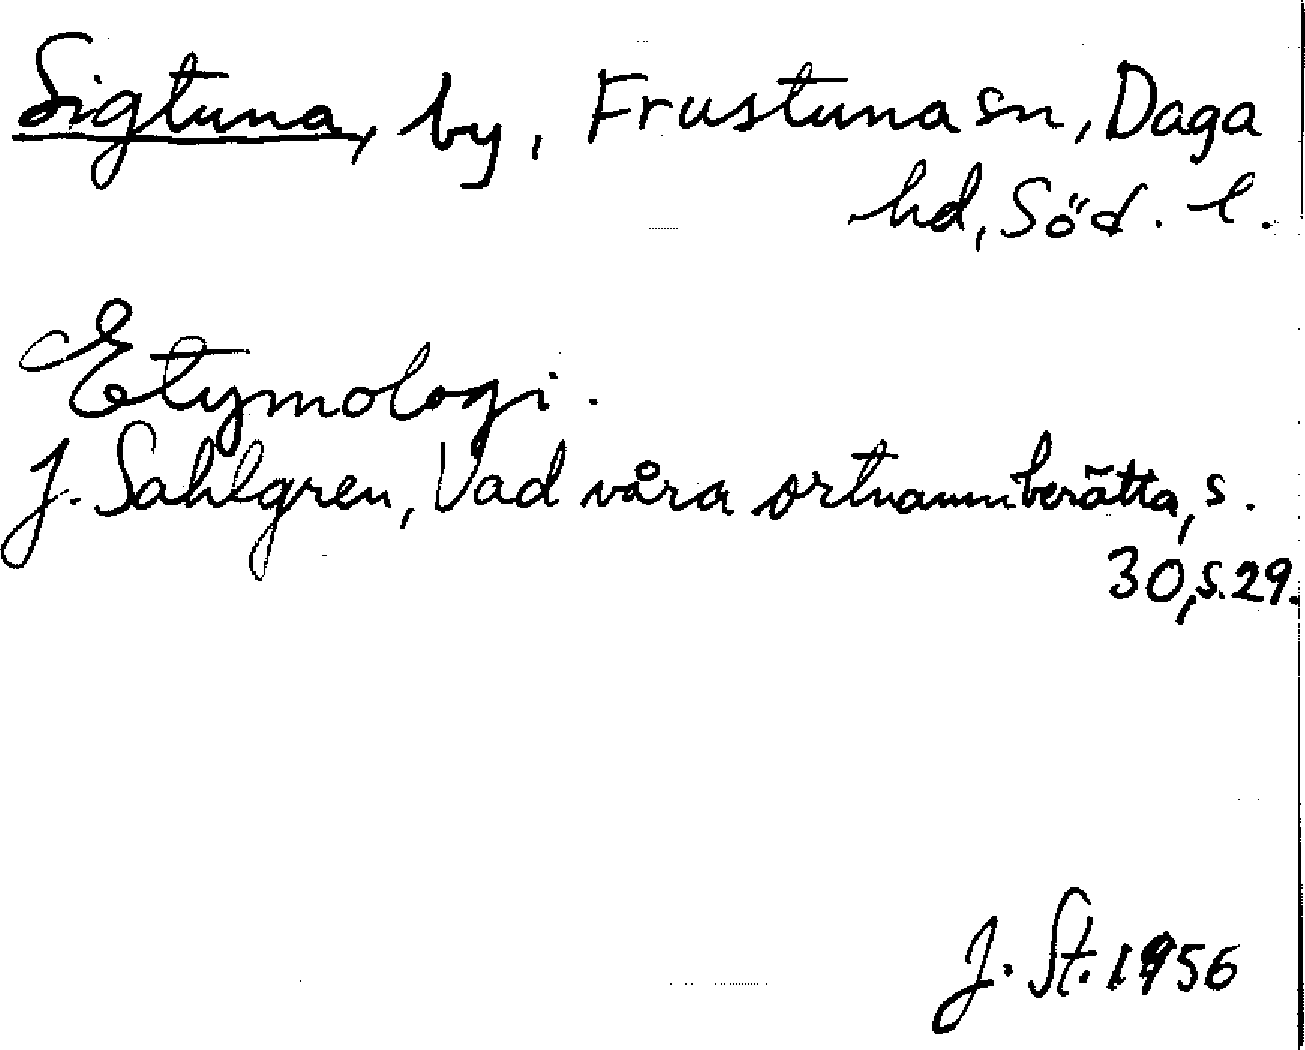 Sigtuna, by, Frustuna sn, Daga
hd, Söd. l.
Etymologi.
J. Sahlgren, Vad våra ortnamn berätta, s.
30, s. 29.
J. St. 1956